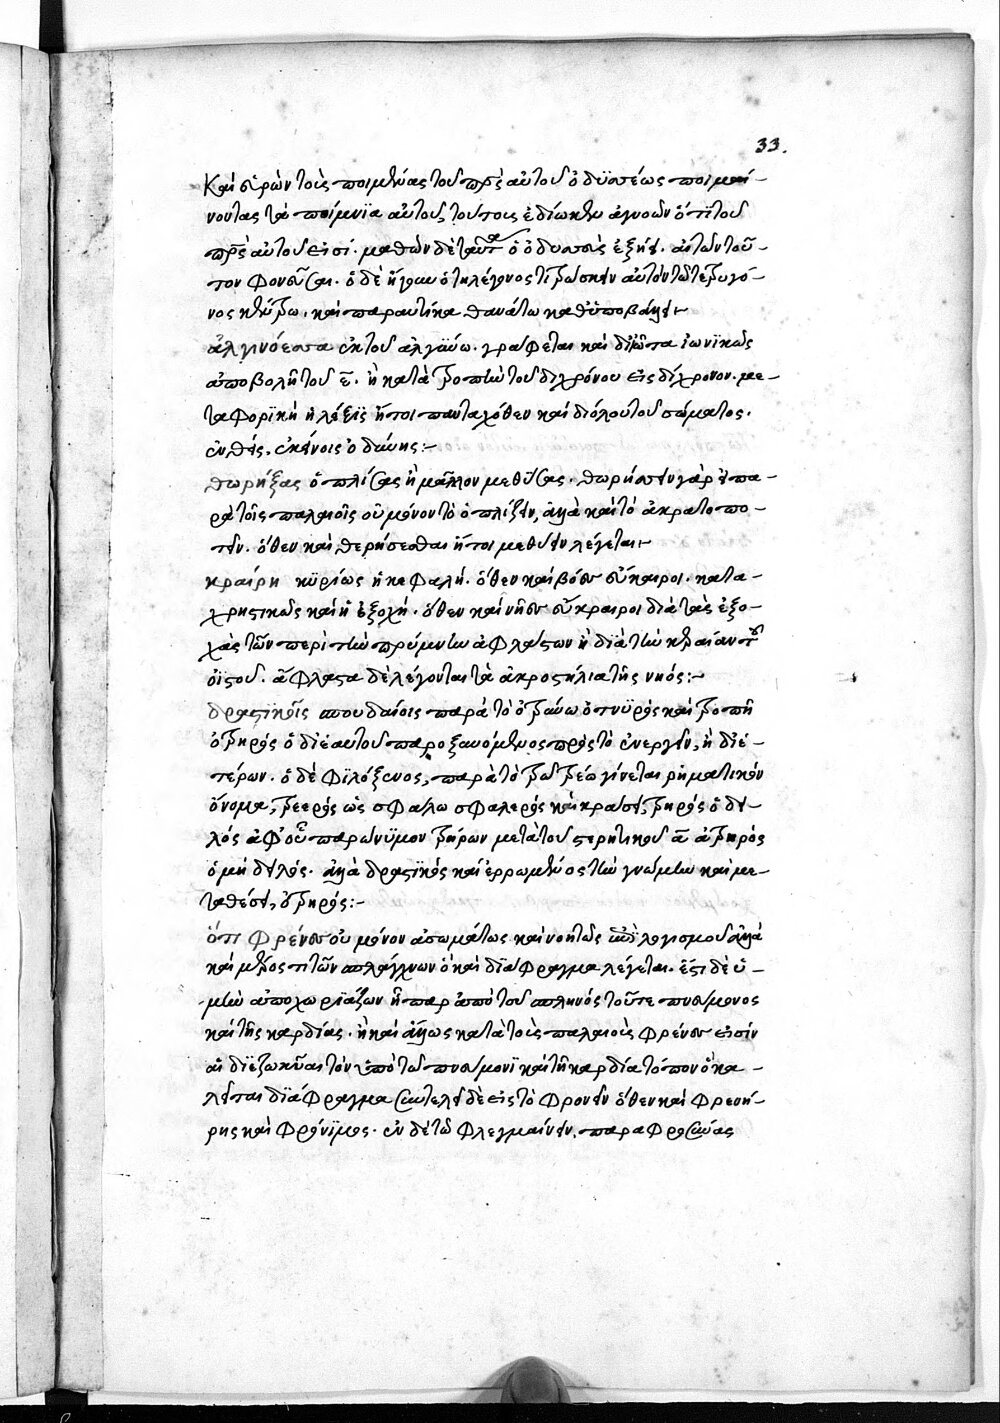 33.
καὶ εὑρὼν τοὺς ποιμένας τοῦ πρς αὐτοῦ ὀδυσέως ποιμαί-
νοντας τὰ ποίμνϊα αὐτοῦ, τούτοις ἐδίωκεν ἀγνοῶν ὅτι τοῦ
πρς αὐτοῦ εἰσί. μαθὼν δὲ ταῦτα ὁ ὀδυσσεὺς ἐξῆει. αὐτὸν τοῦ-
τον φονεῦσαι. ὁ δὲ ὁ τηλέγονος τιτρώσκει αὐτὸν τῶ τε τρυγό-
νος κέντρω, καὶ παραυτίκα θανάτω καθυποβάλλει
ἀλγινόεσσα ἐκ τοῦ ἀλγύνω. γράφεται καὶ διὰ ἰωνϊκῶς
ἀποβολῆ τοῦ ε. ἢ κατὰ τροπὴν τοῦ διχρόνου εἰς δίχρονον. με-
ταφορϊκὴ ἡ λέξϊς ἤτοι πανταχόθεν καὶ διόλου τοῦ σώματος.
ἐνθεὶς, ἐκείνοις ὀδύνης:-
θωρήξας ὁπλίσας ἢ μᾶλλον μεθύσας. θωρήσσειν γὰρ πα-
ρὰ τοῖς παλαιοῖς οὐ μόνον τὸ ὁπλίζειν, ἀλλὰ καὶ τὸ ἀκρατοπο-
τεῖν. ὅθεν καὶ θωρήσεσθαι ἤτοι μεθύειν λέγεται
κραίρη κϋρίως ἡ κεφαλή. ὅθεν καὶ βόες εὔκραιροι. κατα-
χρηστικῶς καὶ ἡ ἐξοχή. ὅθεν καὶ νῆες εὔκραιροι διὰ τὰς ἐξο-
χὰς τῶν περὶ τὴν πρύμνην ἀφλάστων ἢ διὰ τὴν κεραίαν τοῦ
ϊστοῦ. ἄφλαστα δὲ λέγονται τὰ ἀκροστήλια τῆς νηός:-
δραστικοῖς σπουδαίοις παρὰ τὸ ὀτρύνω ὀτρυρὸς καὶ τροπῆ
ὀτρηρὸς ὁ δι' ἑαυτοῦ παροξυνόμενος πρὸς τὸ ἐνεργεῖν, ἢ δι' ἑ-
τέρων. ὁ δὲ φϊλόξενος, παρὰ τὸ τρῶ τρέω γίνεται ῥηματικὸν
ὄνομα, τρεερὸς ὡς σφάλω σφαλερὸς καὶ κράσει, τρηρὸς ὁ δει-
λὸς ἀφ' οὗ παρώνϋμον τρήρων μετὰ τοῦ στερητικοῦ α ἄτρηρὸς
ὁ μὴ δειλός. ἀλλὰ δραστϊκὸς καὶ ἐρρωμένος τὴν γνώμην καὶ με-
ταθέσει, ὀτρηρός:-
ὅτι φρένες οὐ μόνον ἀσωμάτως καὶ νοητῶς λογισμοὶ ἀλλὰ
καὶ μέρος τι τῶν σπλάγχνων ὃ καὶ δϊάφραγμα λέγεται. ἔστι δὲ ὑ-
μὴν ἀποχωρϊάζων ἧπαρ ἀπό του σπληνός τοῦτε πνεύμονος
καὶ τῆς καρδίας. ἢ καὶ ἄλλως κατὰ τοὺς παλαιοὺς φρένες εἰσὶν
αἱ δϊεζωκυῖαι τὸν ὑπὸ τῶ πνεύμονϊ καὶ τῆ καρδία τόπον ὃ κα-
λεῖται δϊάφραγμα συντελεῖ δὲ εἰς τὸ φρονεῖν ὅθεν καὶ φρενή-
ρης καὶ φρόνϊμος. ἐν δὲ τῶ φλεγμαίνειν, παραφροσύνας